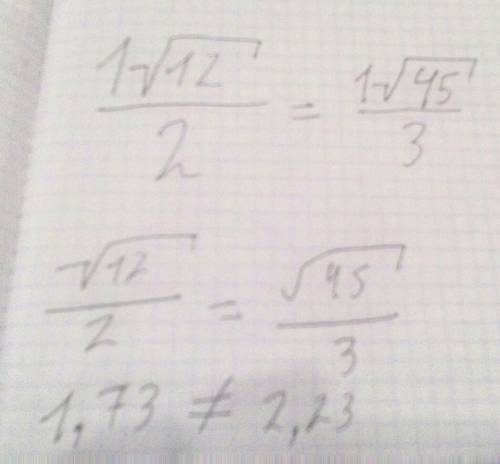 1√12/2 = 1√45/3
√12/2 = √45/3
1,73 ≠ 2,23